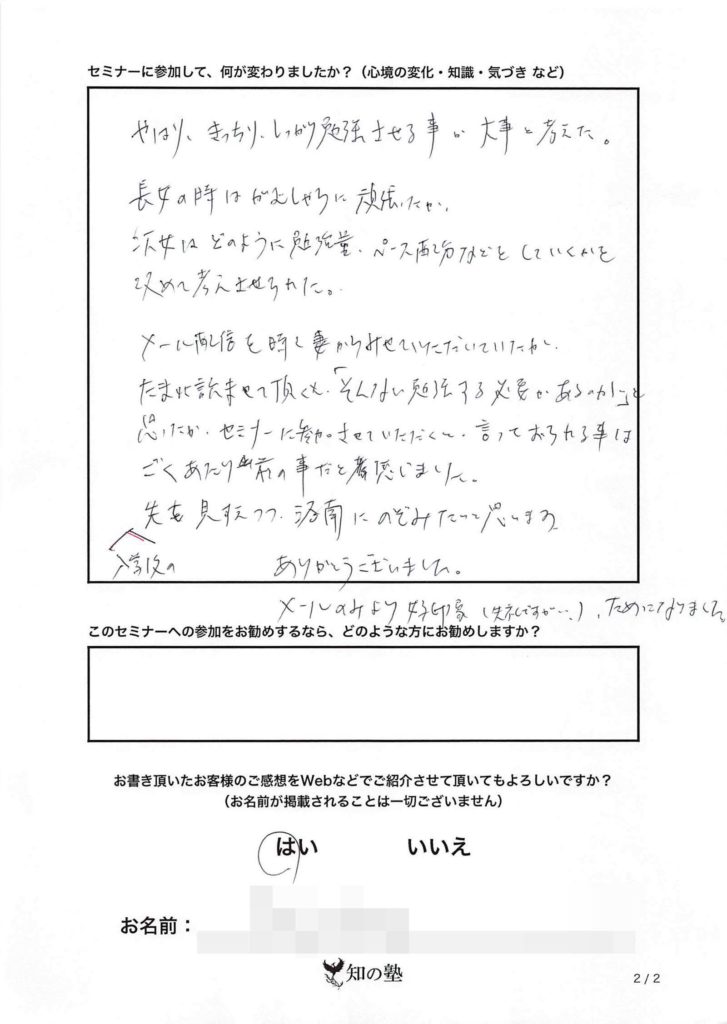 セミナーに参加して、何が変わりましたか？（心境の変化・知識・気づき など）
やはり、きっちり、しっかり勉強させる事が大事と考えた。
長女の時はがむしゃらに頑張ったが、
次女はどのように勉強量、ペース配分などをしていくかを
改めて考えさせられた。
メール配信を時々妻からみせていただいていたが、
たまに読ませて頂くも、「そんない勉強する必要があるのか」と
思ったが、セミナーに参加させていただくと、言っておられる事は
ごくあたり前の事だと感じました。
先を見すえつつ、洛南にのぞみたいと思います
入学後の
ありがとうございました。
メールのみより好印象（失礼ですが…）、ためになりました。
このセミナーへの参加をお勧めするなら、どのような方にお勧めしますか？
お書き頂いたお客様のご感想をWebなどでご紹介させて頂いてもよろしいですか？
（お名前が掲載されることは一切ございません）
はい いいえ
お名前：
知の塾
2 / 2